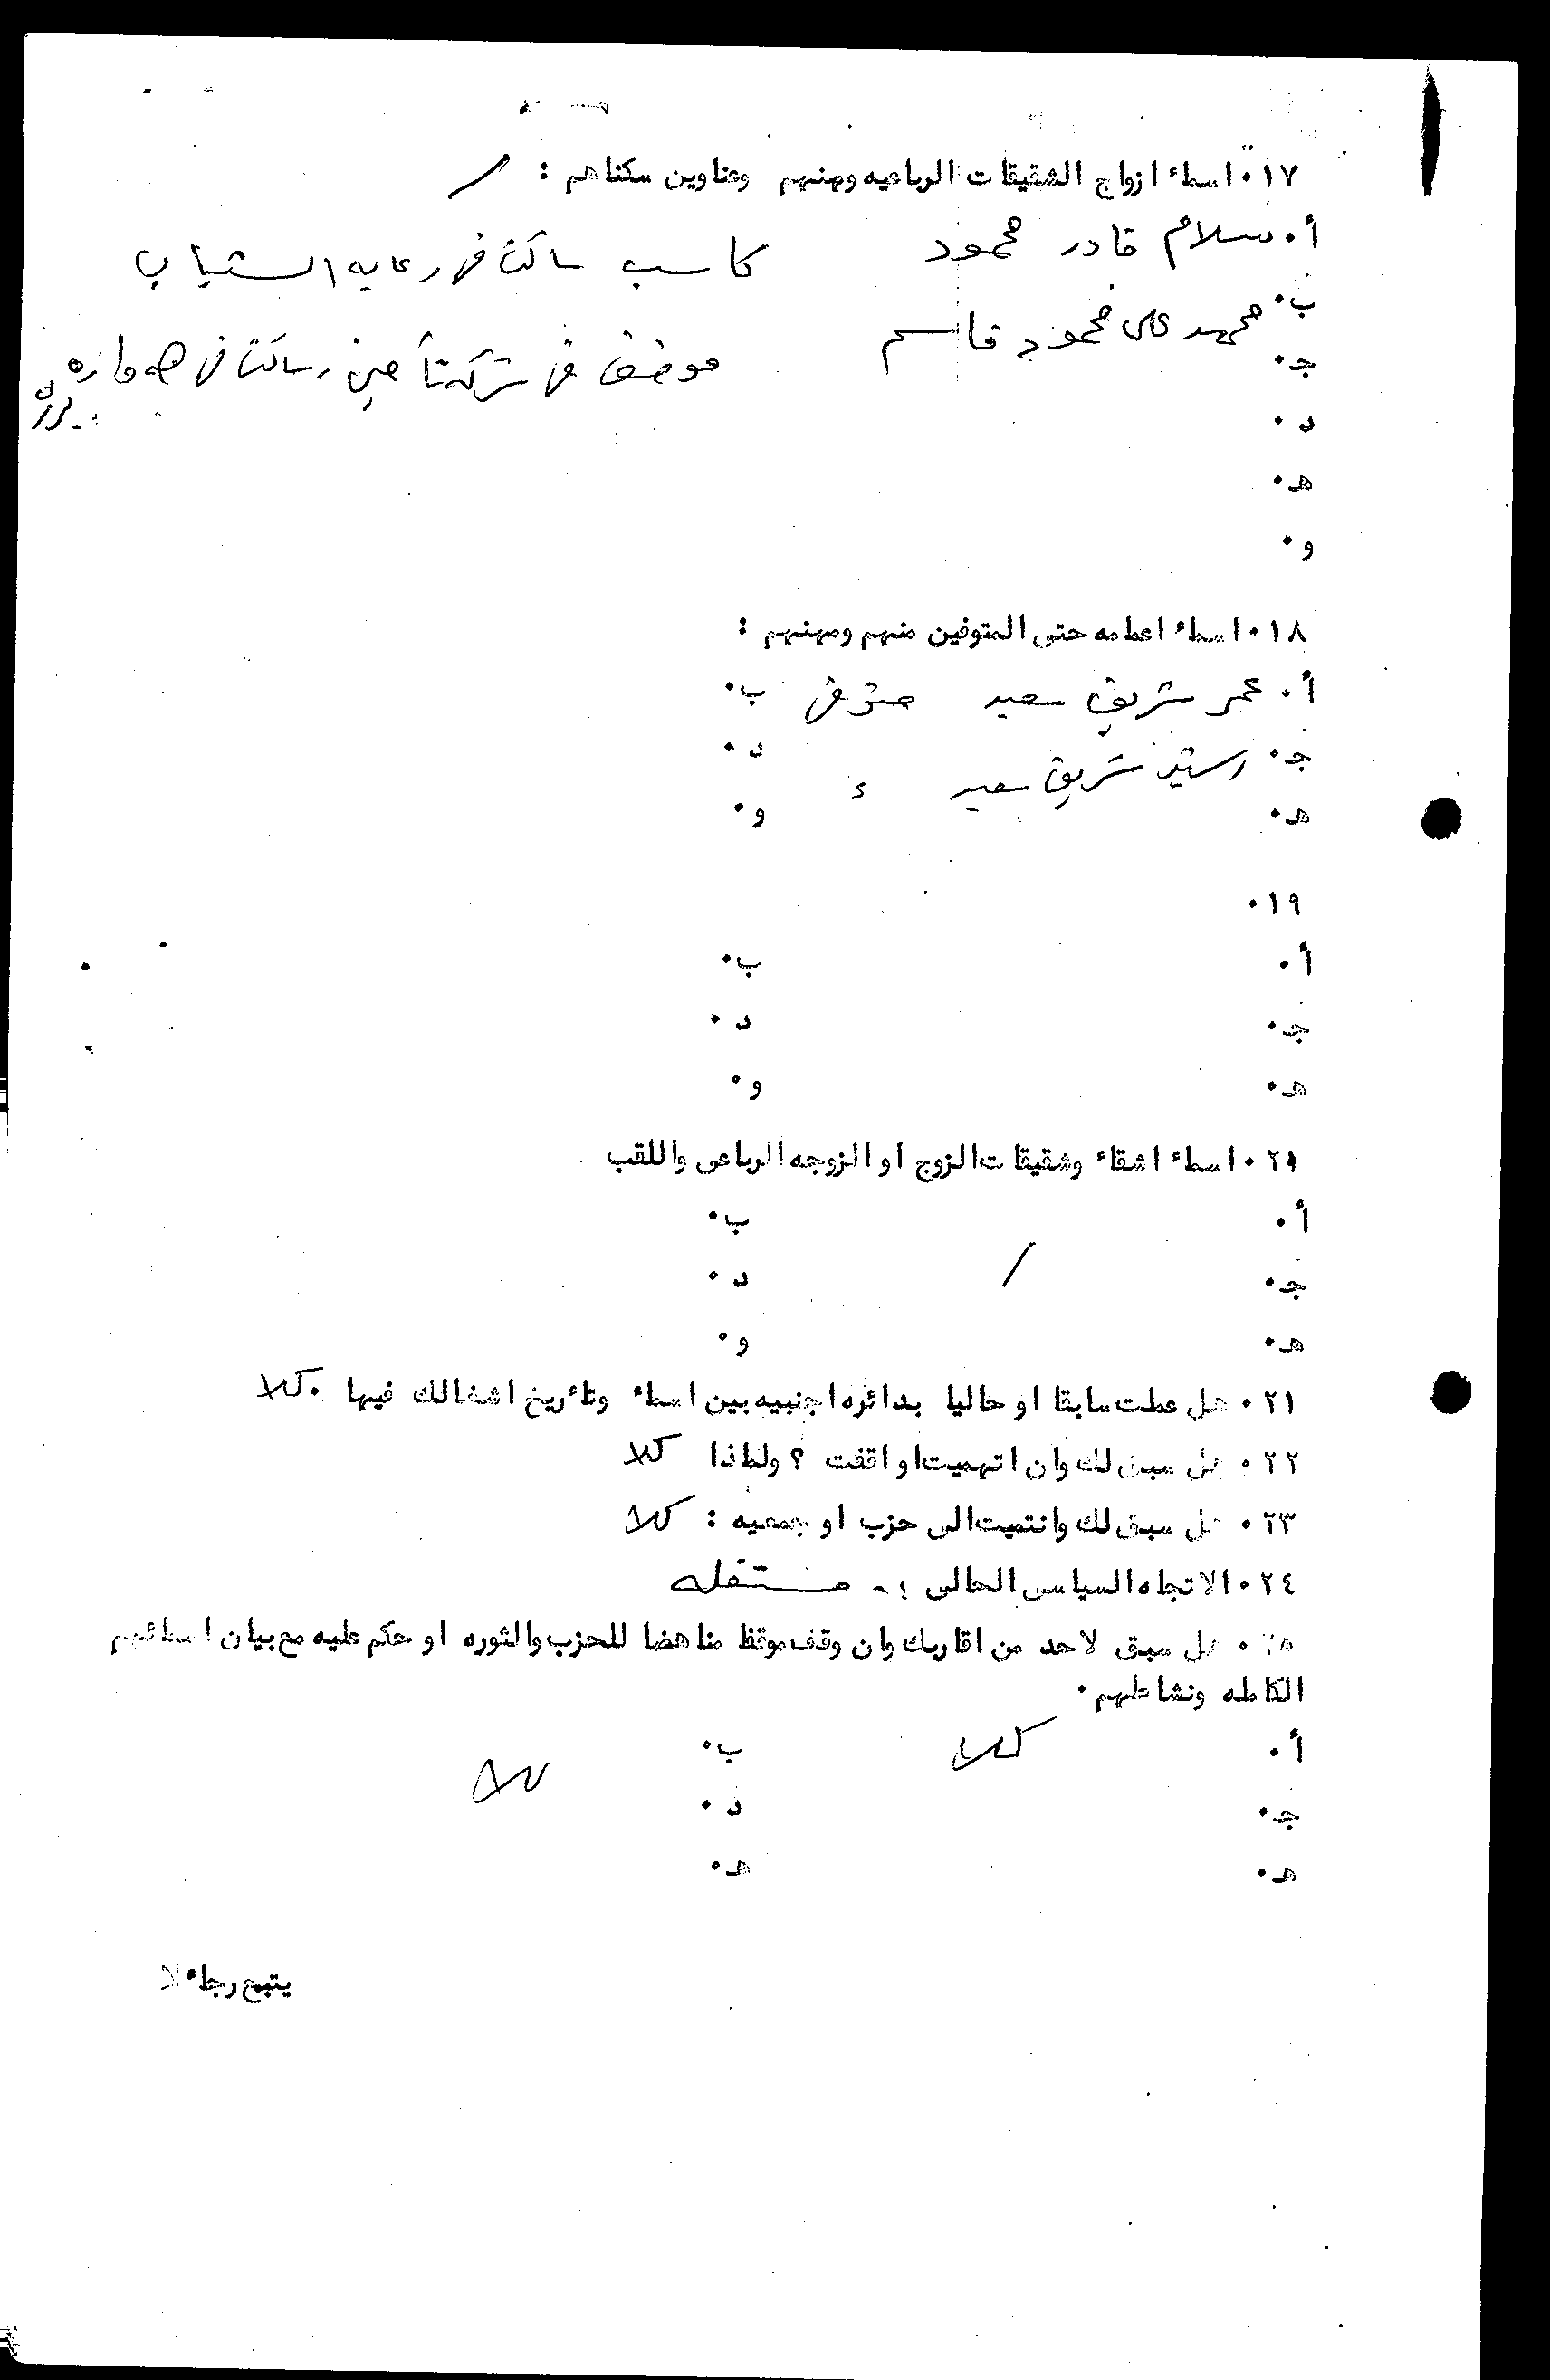 ١٧٠ اسماء ازواج الشقيقات الرباعيه ومهنهم وعناوين سكناهم :
أ٠ سلام قادر محمود كاسب ساكن في رعايه الشباب
ب٠ محمد علي محمود قاسم
ج٠ موضف في شركة تأمين ساكن في
د٠
هـ٠
و٠
١٨٠ اسماء اعمامه حتى المتوفين منهم ومهنهم :
أ٠ عمر شريف سعيد متوفي ب٠
ج٠ رشيد شريف سعيد د٠
هـ٠ و٠
١٩٠
أ٠ ب٠
ج٠ د٠
هـ٠ و٠
٢٠٠ اسماء اشقاء وشقيقات الزوج او الزوجه الرباعى واللقب
أ٠ ب٠
ج٠ / د٠
هـ٠ و٠
٢١٠ هل عملت سابقا او حاليا بدائره اجنبيه بين اسماء وتأريخ اشغالك فيها ٠ كلا
٢٢٠ هل سبق لك وان اتهميت او اقفت ؟ ولماذا كلا
٢٣٠ هل سبق لك وانتميت الى حزب او جمعيه : كلا
٢٤٠ الاتجاه السياسى الحالى :ـ مستقله
٢٥٠ هل سبق لاحد من اقاربك وان وقف موقفا مناهضا للحزب والثوره او حكم عليه مع بيان اسمائهم
الكامله ونشاطهم٠
أ٠ كلا ب٠ كلا
ج٠ د٠
هـ٠ هـ٠
يتبع رجاء لا